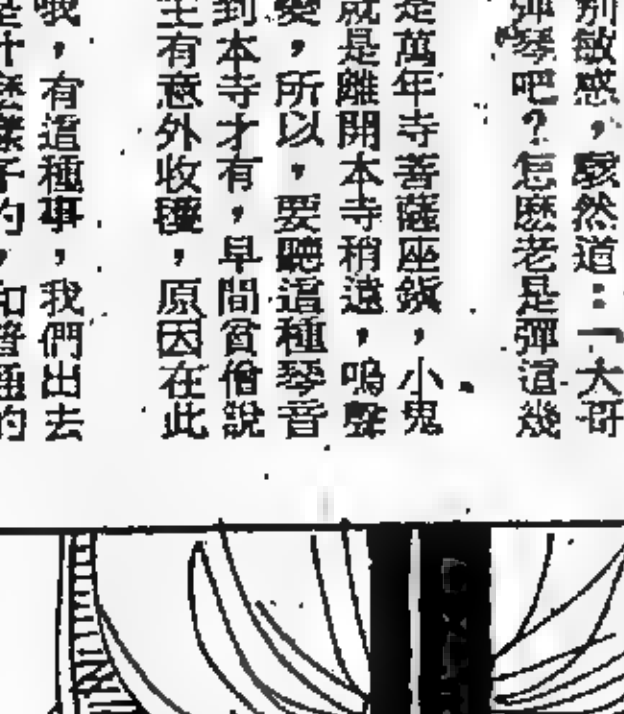 別敏感，駭然道：「大哥
彈琴吧？怎麽老是彈這幾
是萬年寺菩薩座鎮，小鬼
就是離開本寺稍遠，鳴聲
變，所以，要聽這種琴音
到本寺才有，早間貧僧說
有意外收穫，原因在此
哦，有這種事，我們出去
是什麽樣子的，和普通的